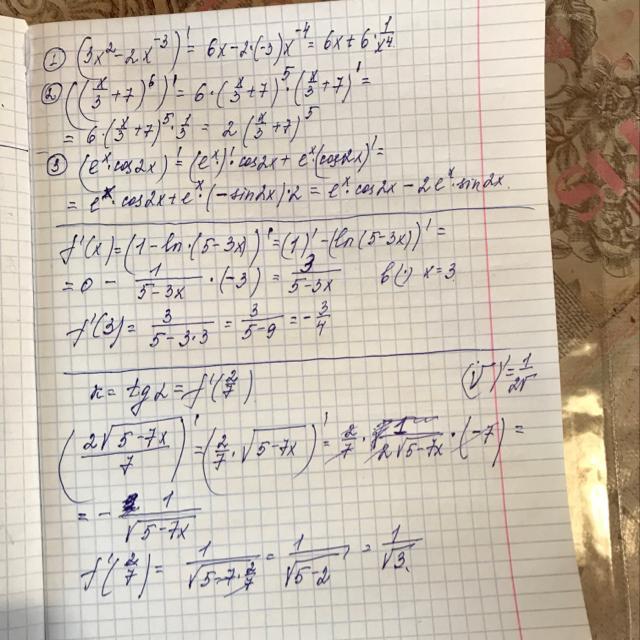 ① (3x² - 2x⁻³)' = 6x - 2·(-3)x⁻⁴ = 6x + 6·1/x⁴
② ((x/3 + 7)⁶)' = 6·(x/3 + 7)⁵·(x/3 + 7)' =
= 6·(x/3 + 7)⁵·1/3 = 2(x/3 + 7)⁵
③ (eˣ·cos2x)' = (eˣ)'·cos2x + eˣ(cos2x)' =
= eˣ·cos2x + eˣ·(-sin2x)·2 = eˣ·cos2x - 2eˣ·sin2x.
f'(x) = (1 - ln·(5-3x))' = (1)' - (ln(5-3x))' =
= 0 - 1/(5-3x)·(-3) = 3/(5-3x) в(·) x=3
f'(3) = 3/(5-3·3) = 3/(5-9) = -3/4
к = tg α = f'(2/7) (√)' = 1/(2√)
(2√(5-7x)/7)' = (2/7·√(5-7x))' = 2/7·1/(2√(5-7x))·(-7) =
= - 1/√(5-7x)
f'(2/7) = 1/√(5-7·2/7) = 1/√(5-2) = 1/√3.